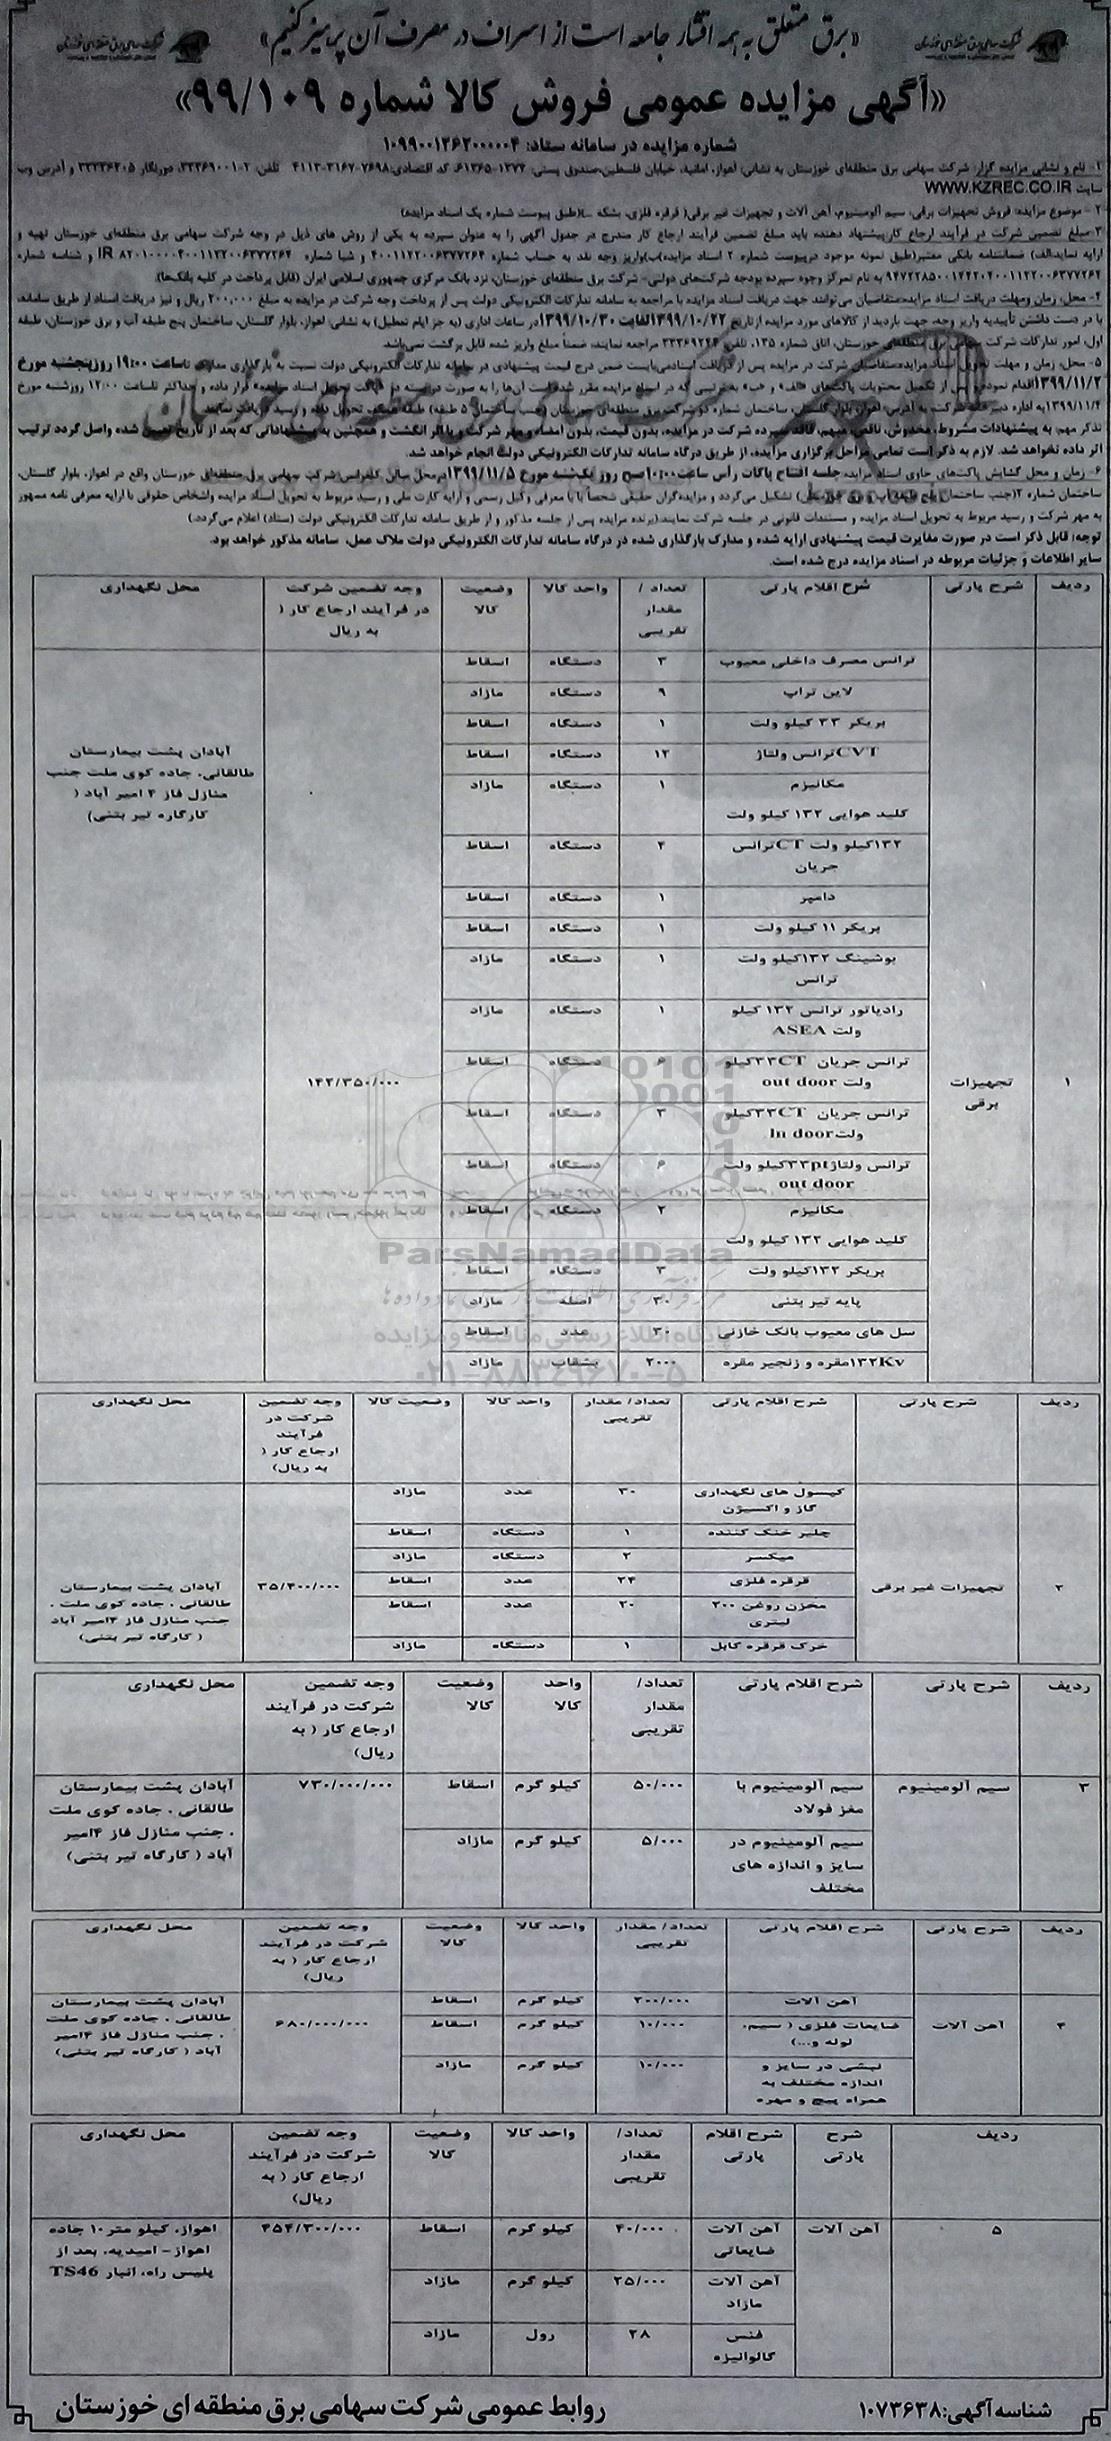 «برق متعلق به همه اقشار جامعه است از اسراف در مصرف آن پرهیز کنیم»
شرکت سهامی برق منطقه‌ای خوزستان
شرکت سهامی برق منطقه‌ای خوزستان
«آگهی مزایده عمومی فروش کالا شماره ۹۹/۱۰۹»
شماره مزایده در سامانه ستاد: ۱۰۹۹۰۰۱۲۶۲۰۰۰۰۰۴
۱- نام و نشانی مزایده گزار: شرکت سهامی برق منطقه‌ای خوزستان به نشانی: اهواز، امانیه، خیابان فلسطین،صندوق پستی: ۱۳۷۴-۶۱۳۶۵، کد اقتصادی:۷۶۹۸-۳۱۶۷-۴۱۱۳ تلفن: ۲-۳۳۳۶۹۰۰۱، دورنگار ۳۳۳۳۶۲۰۵ و آدرس وب
سایت WWW.KZREC.CO.IR
۲- موضوع مزایده: فروش تجهیزات برقی، سیم آلومینیوم، آهن آلات و تجهیزات غیر برقی( قرقره فلزی، بشکه ...)(طبق پیوست شماره یک اسناد مزایده)
۳-مبلغ تضمین شرکت در فرآیند ارجاع کار:پیشنهاد دهنده، باید مبلغ تضمین فرآیند ارجاع کار مندرج در جدول آگهی را به عنوان سپرده به یکی از روش های ذیل در وجه شرکت سهامی برق منطقه‌ای خوزستان تهیه و
ارایه نماید:الف) ضمانتنامه بانکی معتبر(طبق نمونه موجود درپیوست شماره ۲ اسناد مزایده)ب)واریز وجه نقد به حساب شماره ۴۰۰۱۱۲۲۰۰۶۳۷۷۲۶۴ و شبا شماره IR ۸۲۰۱۰۰۰۰۴۰۰۱۱۲۲۰۰۶۳۷۷۲۶۴ و شناسه شماره
به نام تمرکز وجوه سپرده بودجه شرکت‌های دولتی- شرکت برق منطقه‌ای خوزستان، نزد بانک مرکزی جمهوری اسلامی ایران (قابل پرداخت در کلیه بانک‌ها).
۴- محل، زمان ومهلت دریافت اسناد مزایده:متقاضیان می‌توانند جهت دریافت اسناد مزایده با مراجعه به سامانه تدارکات الکترونیکی دولت پس از پرداخت وجه شرکت در مزایده به مبلغ ۲۰۰,۰۰۰ ریال و نیز دریافت اسناد از طریق سامانه،
با در دست داشتن تأییدیه واریز وجه، جهت بازدید از کالاهای مورد مزایده ازتاریخ ۱۳۹۹/۱۰/۲۲لغایت ۱۳۹۹/۱۰/۳۰در ساعات اداری (به جز ایام تعطیل) به نشانی: اهواز، بلوار گلستان، ساختمان پنج طبقه آب و برق خوزستان، طبقه
اول، امور تدارکات شرکت سهامی برق منطقه‌ای خوزستان، اتاق شماره ۱۳۵، تلفن: ۳۳۳۶۹۲۴۴ مراجعه نمایند، ضمناً مبلغ واریز شده قابل برگشت نمی‌باشد.
۵- محل، زمان و مهلت تحویل اسناد مزایده:متقاضیان شرکت در مزایده پس از دریافت اسنادمی‌بایست ضمن درج قیمت پیشنهادی در سامانه تدارکات الکترونیکی دولت نسبت به بارگذاری مدارک تاساعت ۱۹:۰۰ روزپنجشنبه مورخ
۱۳۹۹/۱۱/۲اقدام نموده و پس از تکمیل محتویات پاکت‌های «الف» و «ب» به ترتیبی که در اسناد مزایده مقرر شده است آن‌ها را به صورت دربسته در پاکت تحویل اسناد مزایده قرار داده و حداکثر تاساعت ۱۲:۰۰ روزشنبه مورخ
۱۳۹۹/۱۱/۴به اداره دبیرخانه شرکت به آدرس: اهواز، بلوار گلستان، ساختمان شماره دو شرکت برق منطقه‌ای خوزستان (جنب ساختمان ۵ طبقه) طبقه همکف تحویل داده و رسید دریافت نمایند.
تذکر مهم: به پیشنهادات مشروط، مخدوش، ناقص، مبهم، فاقد سپرده شرکت در مزایده، بدون قیمت، بدون امضاء و مهر شرکت و یا اثر انگشت و همچنین به پیشنهاداتی که بعد از تاریخ تعیین شده واصل گردد ترتیب
اثر داده نخواهد شد. لازم به ذکر است تمامی مراحل برگزاری مزایده، از طریق درگاه سامانه تدارکات الکترونیکی دولت انجام خواهد شد.
۶- زمان و محل گشایش پاکت‌های حاوی اسناد مزایده: جلسه افتتاح پاکات رأس ساعت۱۰:۰۰صبح روز یکشنبه مورخ ۱۳۹۹/۱۱/۵درمحل سالن کنفرانس شرکت سهامی برق منطقه‌ای خوزستان واقع در اهواز، بلوار گلستان،
ساختمان شماره ۲(جنب ساختمان پنج طبقه آب و برق خوزستان) تشکیل می‌گردد و مزایده‌گران حقیقی شخصاً یا با معرفی وکیل رسمی و ارایه کارت ملی و رسید مربوط به تحویل اسناد مزایده واشخاص حقوقی با ارایه معرفی نامه ممهور
به مهر شرکت و رسید مربوط به تحویل اسناد مزایده و مستندات قانونی در جلسه شرکت نمایند.(برنده مزایده پس از جلسه مذکور و از طریق سامانه تدارکات الکترونیکی دولت (ستاد) اعلام می‌گردد.)
توجه: قابل ذکر است در صورت مغایرت قیمت پیشنهادی ارایه شده و مدارک بارگذاری شده در درگاه سامانه تدارکات الکترونیکی دولت ملاک عمل، سامانه مذکور خواهد بود.
سایر اطلاعات و جزئیات مربوطه در اسناد مزایده درج شده است.
ردیف شرح پارتی شرح اقلام پارتی تعداد / مقدار تقریبی واحد کالا وضعیت کالا وجه تضمین شرکت در فرآیند ارجاع کار ( به ریال محل نگهداری
۱ تجهیزات برقی ۱۴۲/۳۵۰/۰۰۰
آبادان پشت بیمارستان
طالقانی، جاده کوی ملت جنب
منازل فاز ۴ امیر آباد (
کارگاره تیر بتنی)
ترانس مصرف داخلی معیوب ۳ دستگاه اسقاط
لاین تراپ ۹ دستگاه مازاد
بریکر ۳۳ کیلو ولت ۱ دستگاه اسقاط
CVTترانس ولتاژ ۱۲ دستگاه اسقاط
مکانیزم ۱ دستگاه مازاد
کلید هوایی ۱۳۲ کیلو ولت
۱۳۲کیلو ولت CTترانس ۴ دستگاه اسقاط
جریان
دامپر ۱ دستگاه اسقاط
بریکر ۱۱ کیلو ولت ۱ دستگاه اسقاط
بوشینگ ۱۳۲کیلو ولت ۱ دستگاه مازاد
ترانس
رادیاتور ترانس ۱۳۲ کیلو ۱ دستگاه مازاد
ولت ASEA
ترانس جریان ۳۳CTکیلو ۶ دستگاه اسقاط
ولت out door
ترانس جریان ۳۳CTکیلو ۳ دستگاه اسقاط
ولت In door
ترانس ولتاژ۳۳ptکیلو ولت ۶ دستگاه اسقاط
out door
مکانیزم ۲ دستگاه اسقاط
کلید هوایی ۱۳۲ کیلو ولت
بریکر ۱۳۲کیلو ولت ۳ دستگاه اسقاط
پایه تیر بتنی ۳۰ اصله مازاد
سل های معیوب بانک خازنی ۳۰ عدد اسقاط
۱۳۲Kvمقره و زنجیر مقره ۲۰۰۰ بشقاب مازاد
ParsNamadData
مرکز فرآوری اطلاعات پارس نماد داده‌ها
پایگاه اطلاع رسانی مناقصه و مزایده
۰۲۱-۸۸۳۴۹۶۷۰-۵
ردیف شرح پارتی شرح اقلام پارتی تعداد/ مقدار تقریبی واحد کالا وضعیت کالا وجه تضمین شرکت در فرآیند ارجاع کار ( به ریال) محل نگهداری
۲ تجهیزات غیر برقی ۳۵/۴۰۰/۰۰۰
آبادان پشت بیمارستان
طالقانی . جاده کوی ملت .
جنب منازل فاز ۴امیر آباد
( کارگاه تیر بتنی)
کپسول های نگهداری ۳۰ عدد مازاد
گاز و اکسیژن
چلیر خنک کننده ۱ دستگاه اسقاط
میکسر ۲ دستگاه مازاد
قرقره فلزی ۲۴ عدد اسقاط
مخزن روغن ۲۰۰ ۲۰ عدد اسقاط
لیتری
خرک قرقره کابل ۱ دستگاه مازاد
ردیف شرح پارتی شرح اقلام پارتی تعداد/ مقدار تقریبی واحد کالا وضعیت کالا وجه تضمین شرکت در فرآیند ارجاع کار ( به ریال) محل نگهداری
۳ سیم آلومینیوم ۷۳۰/۰۰۰/۰۰۰
سیم آلومینیوم با ۵۰/۰۰۰ کیلو گرم اسقاط
مغز فولاد
سیم آلومینیوم در ۵/۰۰۰ کیلو گرم مازاد
سایز و اندازه های
مختلف
آبادان پشت بیمارستان
طالقانی . جاده کوی ملت
. جنب منازل فاز ۴امیر
آباد ( کارگاه تیر بتنی)
ردیف شرح پارتی شرح اقلام پارتی تعداد/ مقدار تقریبی واحد کالا وضعیت کالا وجه تضمین شرکت در فرآیند ارجاع کار ( به ریال) محل نگهداری
۴ آهن آلات ۶۸۰/۰۰۰/۰۰۰
آهن آلات ۲۰۰/۰۰۰ کیلو گرم اسقاط
ضایعات فلزی ( سیم، ۱۰/۰۰۰ کیلو گرم اسقاط
لوله و...)
نبشی در سایز و ۱۰/۰۰۰ کیلو گرم مازاد
اندازه مختلف به
همراه پیچ و مهره
آبادان پشت بیمارستان
طالقانی . جاده کوی ملت
. جنب منازل فاز ۴امیر
آباد ( کارگاه تیر بتنی)
ردیف شرح پارتی شرح اقلام پارتی تعداد/ مقدار تقریبی واحد کالا وضعیت کالا وجه تضمین شرکت در فرآیند ارجاع کار ( به ریال) محل نگهداری
۵ آهن آلات ۴۵۴/۳۰۰/۰۰۰
آهن آلات ۴۰/۰۰۰ کیلو گرم اسقاط
ضایعاتی
آهن آلات ۲۵/۰۰۰ کیلو گرم مازاد
مازاد
فنس ۲۸ رول مازاد
گالوانیزه
اهواز، کیلو متر۱۰ جاده
اهواز- امیدیه، بعد از
پلیس راه، انبار TS46
شناسه آگهی:۱۰۷۳۶۳۸
روابط عمومی شرکت سهامی برق منطقه ای خوزستان